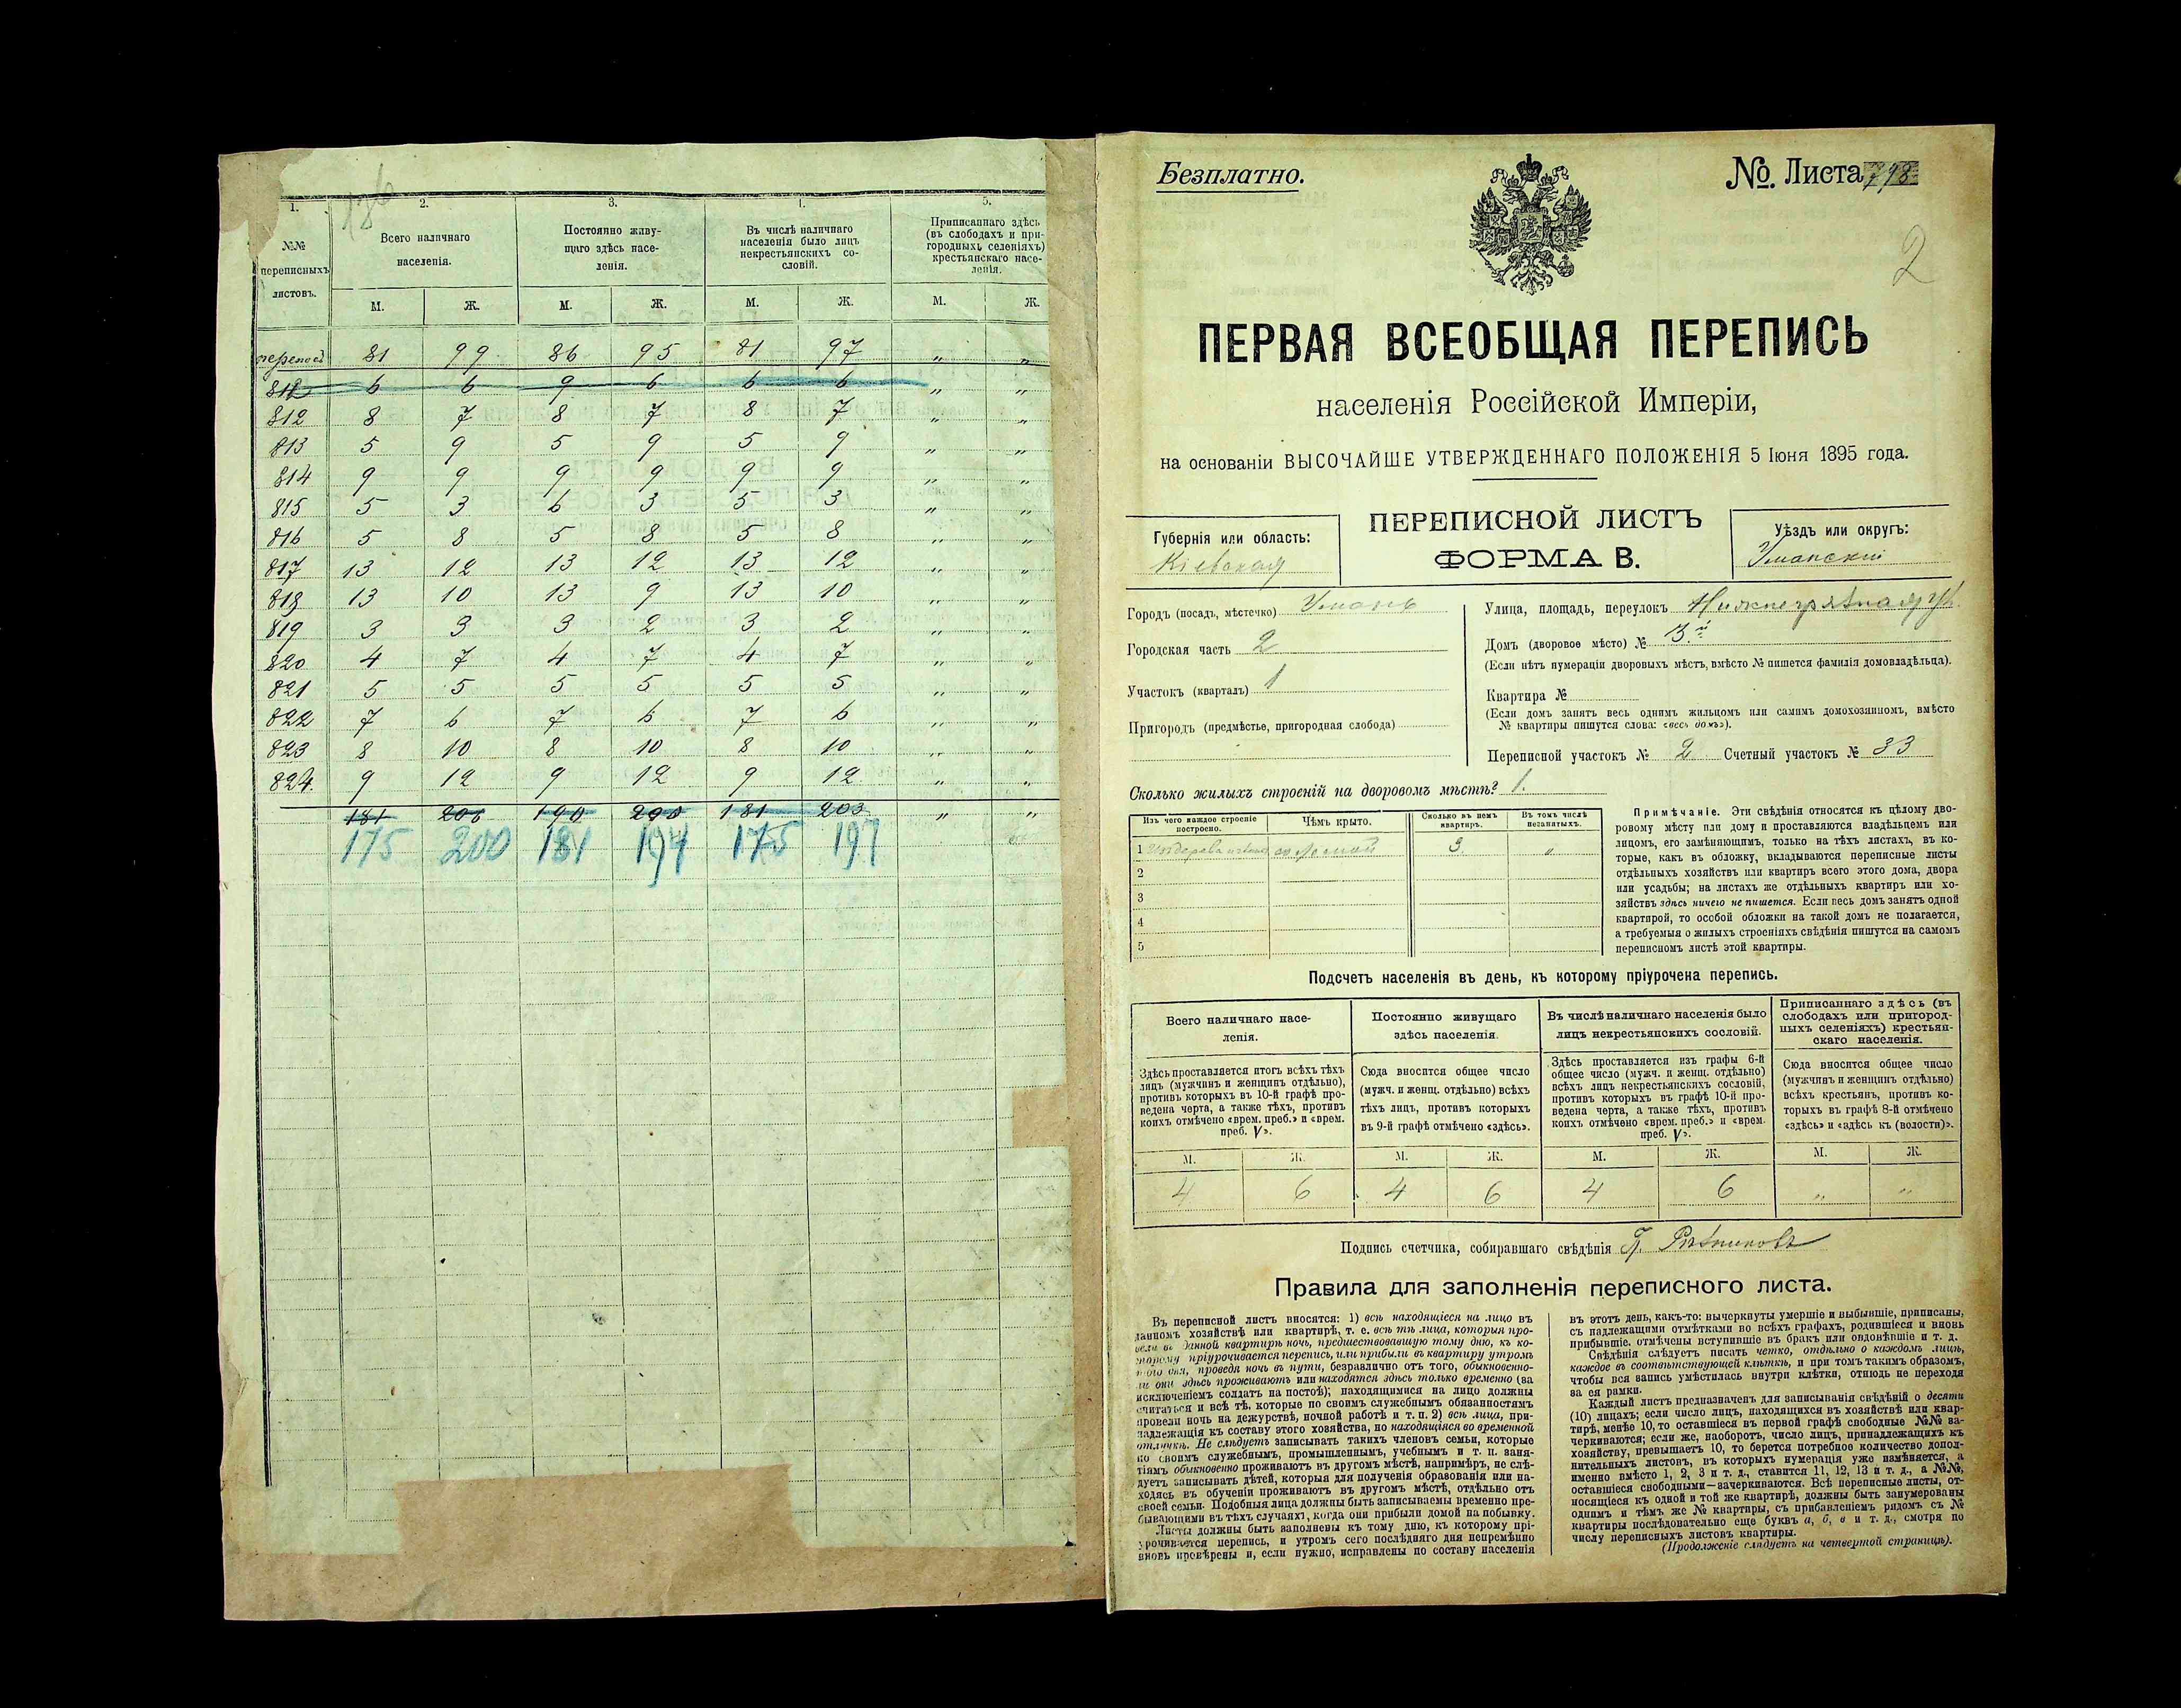 186
1.
2.
3.
4.
5.
№№
переписныхъ
листовъ.
Всего наличнаго
населенія.
Постоянно живу-
щаго здѣсь насе-
ленія.
Въ числѣ наличнаго
населенія было лицъ
некрестьянскихъ со-
словій.
Приписаннаго здѣсь
(въ слободахъ и при-
городныхъ селеніяхъ)
крестьянскаго насе-
ленія.
М. Ж. М. Ж. М. Ж. М. Ж.
переносъ 81 99 86 95 81 97 " "
811 6 6 9 6 6 6 " "
812 8 7 8 7 8 7 " "
813 5 9 5 9 5 9 " "
814 9 9 9 9 9 9 " "
815 5 3 6 3 5 3 " "
816 5 8 5 8 5 8 " "
817 13 12 13 12 13 12 " "
818 13 10 13 9 13 10 " "
819 3 3 3 2 3 2 " "
820 4 7 4 7 4 7 " "
821 5 5 5 5 5 5 " "
822 7 6 7 6 7 6 " "
823 8 10 8 10 8 10 " "
824. 9 12 9 12 9 12 " "
181 206 190 200 181 203 " "
175 200 181 194 175 197
Безплатно.
№. Листа 798
2
ПЕРВАЯ ВСЕОБЩАЯ ПЕРЕПИСЬ
населенія Россійской Имперіи,
на основаніи ВЫСОЧАЙШЕ УТВЕРЖДЕННАГО ПОЛОЖЕНІЯ 5 Іюня 1895 года.
Губернія или область:
Кіевская
ПЕРЕПИСНОЙ ЛИСТЪ
ФОРМА В.
Уѣздъ или округъ:
Уманскій
Городъ (посадъ, мѣстечко) Умань
Городская часть 2
Участокъ (кварталъ) 1
Пригородъ (предмѣстье, пригородная слобода)
Улица, площадь, переулокъ Нижнегрязная ул.
Домъ (дворовое мѣсто) №
(Если нѣтъ нумераціи дворовыхъ мѣстъ, вмѣсто № пишется фамилія домовладѣльца).
Квартира №
(Если домъ занятъ весь однимъ жильцомъ или самимъ домохозяиномъ, вмѣсто
№ квартиры пишутся слова: «весь домъ»).
Переписной участокъ № 2 Счетный участокъ № 33
Сколько жилыхъ строеній на дворовомъ мѣстѣ? 1.
Изъ чего каждое строеніе
построено.
Чѣмъ крыто.
Сколько въ немъ
квартиръ.
Въ томъ числѣ
незанятыхъ.
1 соломой 3. "
2
3
4
5
Примѣчаніе. Эти свѣдѣнія относятся къ цѣлому дво-
ровому мѣсту или дому и проставляются владѣльцемъ или
лицомъ, его замѣняющимъ, только на тѣхъ листахъ, въ ко-
торые, какъ въ обложку, вкладываются переписные листы
отдѣльныхъ хозяйствъ или квартиръ всего этого дома, двора
или усадьбы; на листахъ же отдѣльныхъ квартиръ или хо-
зяйствъ здѣсь ничего не пишется. Если весь домъ занятъ одной
квартирой, то особой обложки на такой домъ не полагается,
а требуемыя о жилыхъ строеніяхъ свѣдѣнія пишутся на самомъ
переписномъ листѣ этой квартиры.
Подсчетъ населенія въ день, къ которому пріурочена перепись.
Всего наличнаго насе-
ленія.
Постоянно живущаго
здѣсь населенія.
Въ числѣ наличнаго населенія было
лицъ некрестьянскихъ сословій.
Приписаннаго здѣсь (въ
слободахъ или пригород-
ныхъ селеніяхъ) крестьян-
скаго населенія.
Здѣсь проставляется итогъ всѣхъ тѣхъ
лицъ (мужчинъ и женщинъ отдѣльно),
противъ которыхъ въ 10-й графѣ про-
ведена черта, а также тѣхъ, противъ
коихъ отмѣчено «врем. преб.» и «врем.
преб. V».
Сюда вносится общее число
(мужч. и женщ. отдѣльно) всѣхъ
тѣхъ лицъ, противъ которыхъ
въ 9-й графѣ отмѣчено «здѣсь».
Здѣсь проставляется изъ графы 6-й
общее число (мужч. и женщ. отдѣльно)
всѣхъ лицъ некрестьянскихъ сословій,
противъ которыхъ въ графѣ 10-й про-
ведена черта, а также тѣхъ, противъ
коихъ отмѣчено «врем. преб.» и «врем.
преб. V».
Сюда вносится общее число
(мужчинъ и женщинъ отдѣльно)
всѣхъ крестьянъ, противъ ко-
торыхъ въ графѣ 8-й отмѣчено
«здѣсь» и «здѣсь къ (волости)».
М. Ж. М. Ж. М. Ж. М. Ж.
4 6 4 6 4 6 " "
Подпись счетчика, собиравшаго свѣдѣнія
Правила для заполненія переписного листа.
Въ переписной листъ вносятся: 1) всѣ находящіеся на лицо въ
данномъ хозяйствѣ или квартирѣ, т. е. всѣ тѣ лица, которыя про-
вели въ данной квартирѣ ночь, предшествовавшую тому дню, къ ко-
торому пріурочивается перепись, или прибыли въ квартиру утромъ
того дня, проведя ночь въ пути, безразлично отъ того, обыкновенно-
ли они здѣсь проживаютъ или находятся здѣсь только временно (за
исключеніемъ солдатъ на постоѣ); находящимися на лицо должны
считаться и всѣ тѣ, которые по своимъ служебнымъ обязанностямъ
провели ночь на дежурствѣ, ночной работѣ и т. п. 2) всѣ лица, при-
надлежащія къ составу этого хозяйства, но находящіяся во временной
отлучкѣ. Не слѣдуетъ записывать такихъ членовъ семьи, которые
по своимъ служебнымъ, промышленнымъ, учебнымъ и т. п. заня-
тіямъ обыкновенно проживаютъ въ другомъ мѣстѣ, напримѣръ, не слѣ-
дуетъ записывать дѣтей, которыя для полученія образованія или на-
ходясь въ обученіи проживаютъ въ другомъ мѣстѣ, отдѣльно отъ
своей семьи. Подобныя лица должны быть записываемы временно пре-
бывающими въ тѣхъ случаяхъ, когда они прибыли домой на побывку.
Листы должны быть заполнены къ тому дню, къ которому прі-
урочивается перепись, и утромъ сего послѣдняго дня непремѣнно
вновь провѣрены и, если нужно, исправлены по составу населенія
въ этотъ день, какъ-то: вычеркнуты умершіе и выбывшіе, приписаны,
съ надлежащими отмѣтками во всѣхъ графахъ, родившіеся и вновь
прибывшіе, отмѣчены вступившіе въ бракъ или овдовѣвшіе и т. д.
Свѣдѣнія слѣдуетъ писать четко, отдѣльно о каждомъ лицѣ,
каждое въ соотвѣтствующей клѣткѣ, и при томъ такимъ образомъ,
чтобы вся запись умѣстилась внутри клѣтки, отнюдь не переходя
за ея рамки.
Каждый листъ предназначенъ для записыванія свѣдѣній о десяти
(10) лицахъ; если число лицъ, находящихся въ хозяйствѣ или квар-
тирѣ, менѣе 10, то оставшіеся въ первой графѣ свободные №№ за-
черкиваются; если же, наоборотъ, число лицъ, принадлежащихъ къ
хозяйству, превышаетъ 10, то берется потребное количество допол-
нительныхъ листовъ, въ которыхъ нумерація уже измѣняется, а
именно вмѣсто 1, 2, 3 и т. д., ставится 11, 12, 13 и т. д., а №№,
оставшіеся свободными—зачеркиваются. Всѣ переписные листы, от-
носящіеся къ одной и той же квартирѣ, должны быть занумерованы
однимъ и тѣмъ же № квартиры, съ прибавленіемъ рядомъ съ №
квартиры послѣдовательно еще буквъ а, б, в и т. д., смотря по
числу переписныхъ листовъ квартиры.
(Продолженіе слѣдуетъ на четвертой страницѣ).